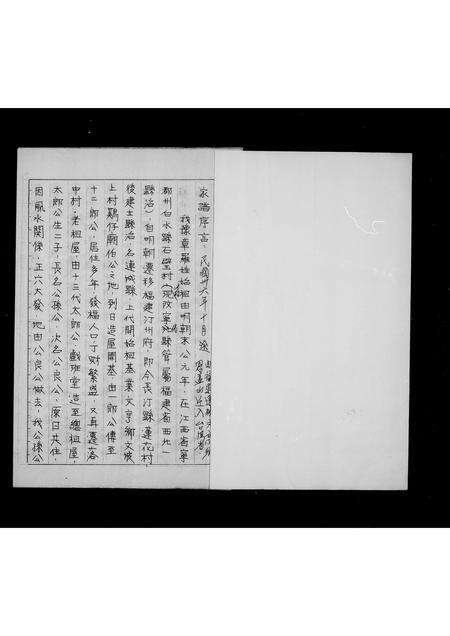 家譜序言、民國卅六年十月遂
我豫章羅姓始祖由明朝末公元年、在江西省寧
都州白水縣石壁村(現改寧化縣管屬福建省西北一
縣治)、自明朝遷移福建汀州府即今長汀縣蓮花村
後建立縣治、名連城縣、上代開始祖基業文亨鄉文坡
上村鷄仔廟伯公之地、列日造屋開基、由一郎公傳至
十二郎公、居住多年、後福人口丁財繁盛、又再遷落
中村、老祖屋、由十三代太郎公、戲班堂、造至總祖屋、
太郎公生二子、長名公操公、次名公良公、原日共住、
因風水關係、正六大發、地由公良公做去、我公操公